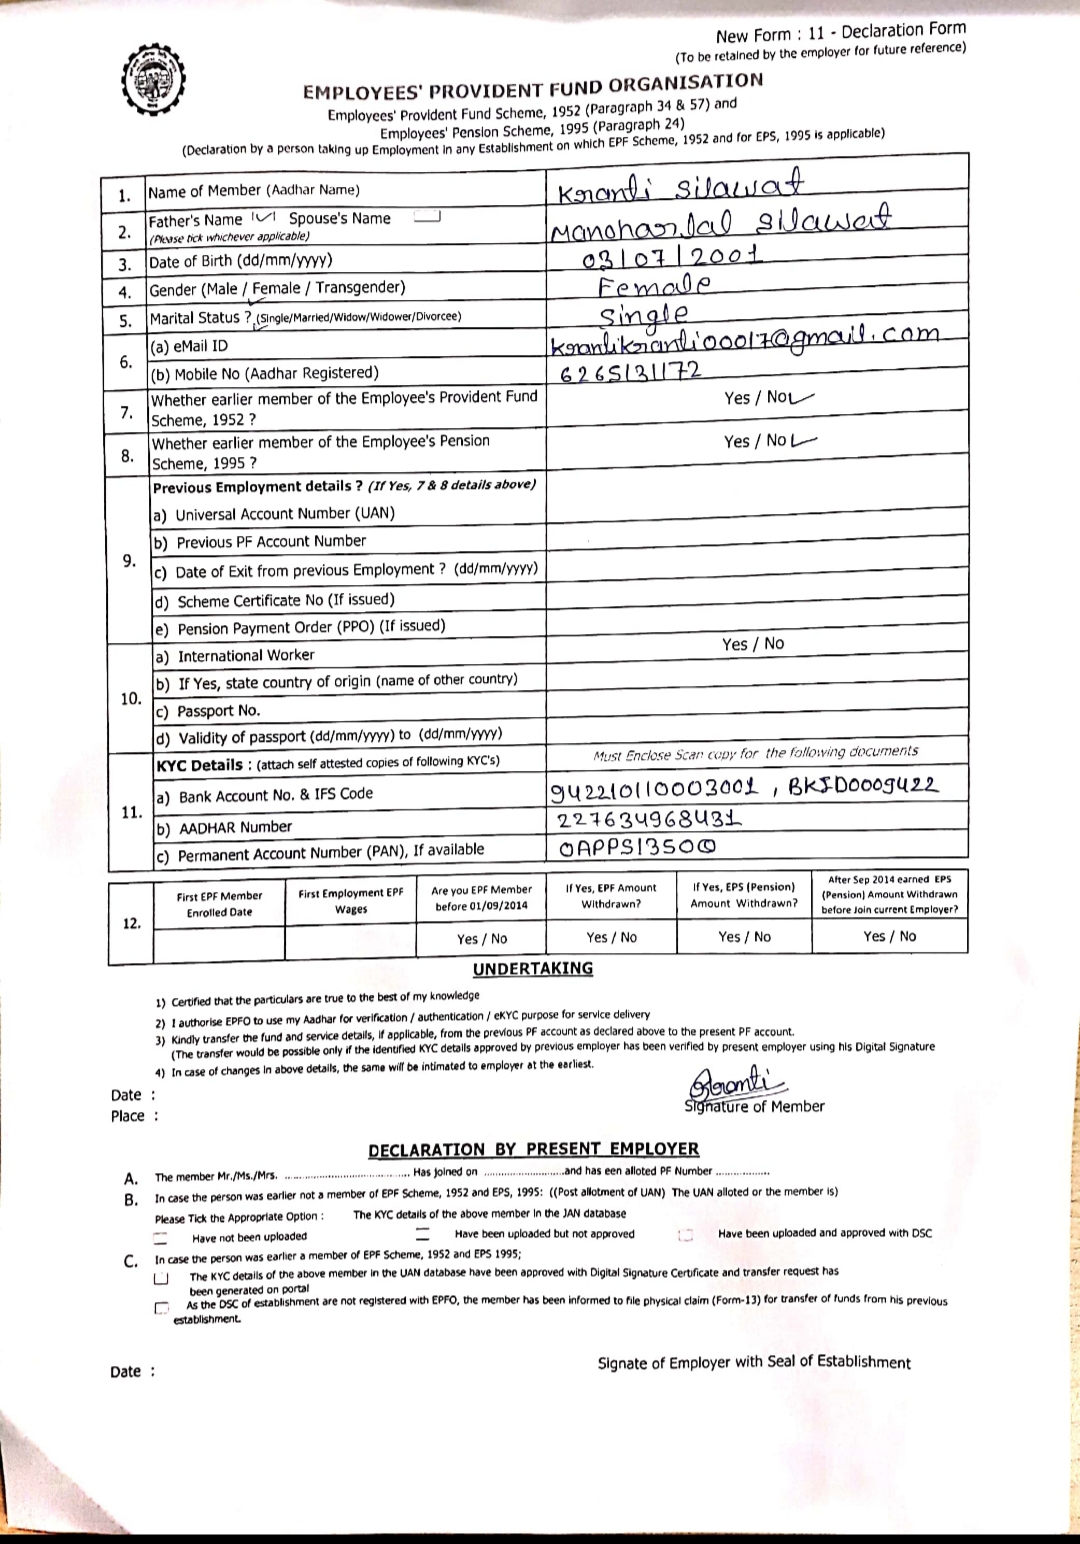 New Form : 11 - Declaration Form
(To be retained by the employer for future reference)
EMPLOYEES' PROVIDENT FUND ORGANISATION
Employees' Provident Fund Scheme, 1952 (Paragraph 34 & 57) and
Employees' Pension Scheme, 1995 (Paragraph 24)
(Declaration by a person taking up Employment in any Establishment on which EPF Scheme, 1952 and for EPS, 1995 is applicable)
1. Name of Member (Aadhar Name) Kranti Silawat
2. Father's Name Spouse's Name Manoharlal Silawat
(Please tick whichever applicable)
3. Date of Birth (dd/mm/yyyy) 03|07|2001
4. Gender (Male / Female / Transgender) Female
5. Marital Status ? (Single/Married/Widow/Widower/Divorcee) Single
6. (a) eMail ID krantikranti00017@gmail.com
(b) Mobile No (Aadhar Registered) 6265131172
7. Whether earlier member of the Employee's Provident Fund Scheme, 1952 ? Yes / No
8. Whether earlier member of the Employee's Pension Scheme, 1995 ? Yes / No
9. Previous Employment details ? (If Yes, 7 & 8 details above)
a) Universal Account Number (UAN)
b) Previous PF Account Number
c) Date of Exit from previous Employment ? (dd/mm/yyyy)
d) Scheme Certificate No (If issued)
e) Pension Payment Order (PPO) (If issued)
10. a) International Worker Yes / No
b) If Yes, state country of origin (name of other country)
c) Passport No.
d) Validity of passport (dd/mm/yyyy) to (dd/mm/yyyy)
11. KYC Details : (attach self attested copies of following KYC's) Must Enclose Scan copy for the following documents
a) Bank Account No. & IFS Code 942210110003001 , BKID0009422
b) AADHAR Number 227634968431
c) Permanent Account Number (PAN), If available OAPPS1350Q
12. First EPF Member Enrolled Date
First Employment EPF Wages
Are you EPF Member before 01/09/2014
If Yes, EPF Amount Withdrawn?
If Yes, EPS (Pension) Amount Withdrawn?
After Sep 2014 earned EPS (Pension) Amount Withdrawn before Join current Employer?
Yes / No Yes / No Yes / No Yes / No
UNDERTAKING
1) Certified that the particulars are true to the best of my knowledge
2) I authorise EPFO to use my Aadhar for verification / authentication / eKYC purpose for service delivery
3) Kindly transfer the fund and service details, if applicable, from the previous PF account as declared above to the present PF account.
(The transfer would be possible only if the identified KYC details approved by previous employer has been verified by present employer using his Digital Signature
4) In case of changes in above details, the same will be intimated to employer at the earliest.
Kranti
Date :
Signature of Member
Place :
DECLARATION BY PRESENT EMPLOYER
A. The member Mr./Ms./Mrs. .................................. Has joined on ..........................and has een alloted PF Number ..................
B. In case the person was earlier not a member of EPF Scheme, 1952 and EPS, 1995: ((Post allotment of UAN) The UAN alloted or the member is)
Please Tick the Appropriate Option : The KYC details of the above member in the JAN database
Have not been uploaded Have been uploaded but not approved Have been uploaded and approved with DSC
C. In case the person was earlier a member of EPF Scheme, 1952 and EPS 1995;
The KYC details of the above member in the UAN database have been approved with Digital Signature Certificate and transfer request has
been generated on portal
As the DSC of establishment are not registered with EPFO, the member has been informed to file physical claim (Form-13) for transfer of funds from his previous
establishment.
Date :
Signate of Employer with Seal of Establishment